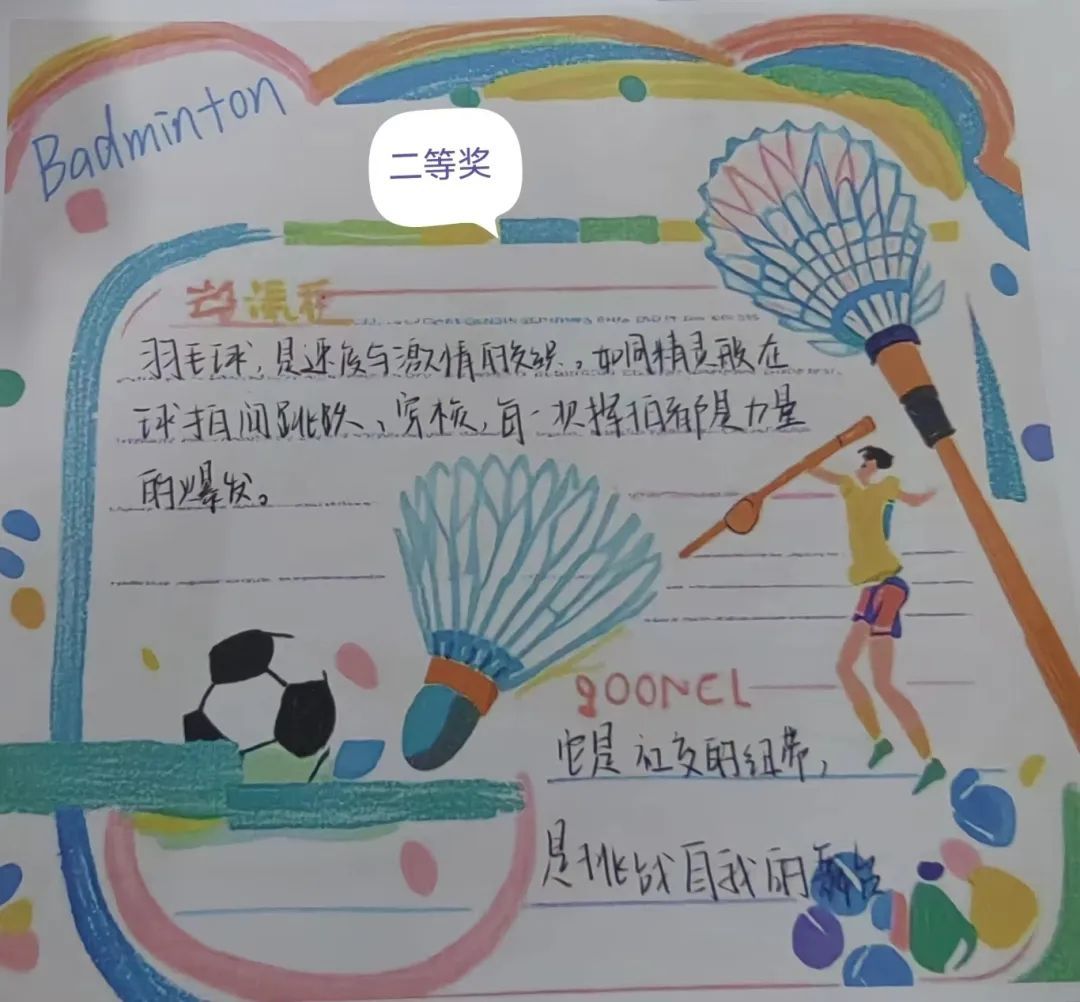 Badminton
二等奖
羽毛球,是速度与激情的交织,如同精灵般在
球拍间跳跃、穿梭,每一次挥拍都是力量
的爆发。
gOONEL
它是社交的纽带,
是挑战自我的舞台